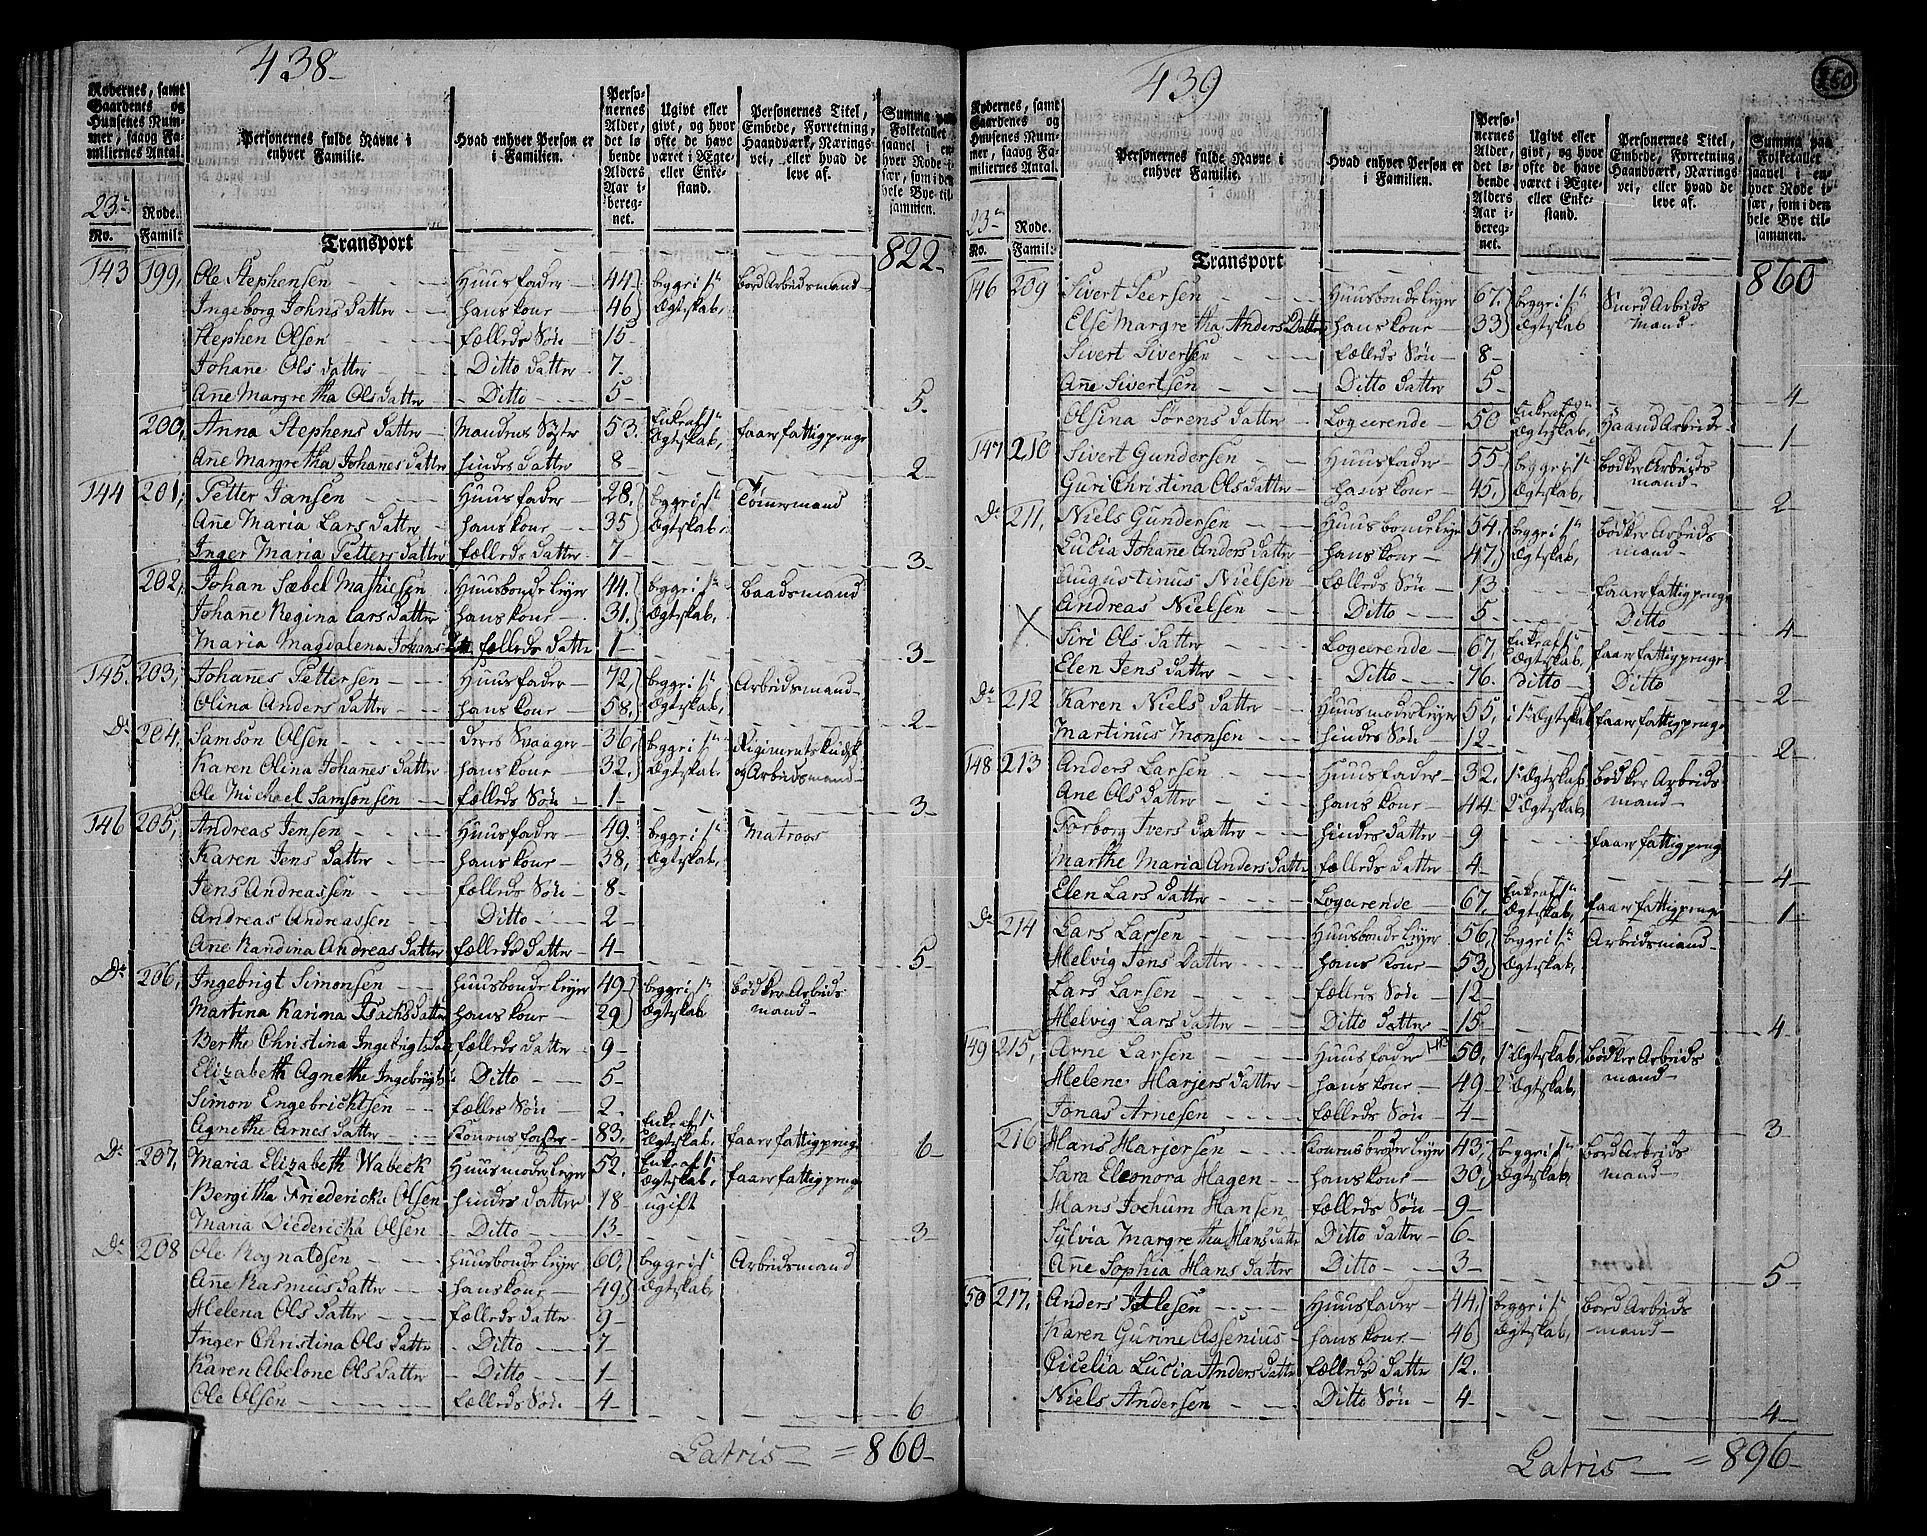 438-
Rodernes, samt Gaardenes og Huusenes Nummer, saavog Familiernes Antal.
Personernes fulde Navne i enhver Familie.
Hvad enhver Person er i Familien.
Personernes Alder, det løbende Alders Aar iberegnet.
Ugivt eller givt, og hvor ofte de have været i Ægte- eller Enkestand.
Personernes Titel, Embede, Forretning, Haandværk, Næringsvei, eller hvad de leve af.
Summa paa Folketallet saavel i enhver Rode især, som i den hele Bye tilsammen.
23de Rode.
No. Famil:
Transport 822-
143 199, Ole Stephensen Huusfader 44 begge i 1te bordArbeidsmand
Ingeborg Johns Datter hans kone 46 Ægteskab,
Stephen Olsen fælleds Søn 15-
Johanne Ols datter Ditto datter 7-
Anne Margretha Olsdatter Ditto 5- 5.
200, Anna Stephens datter Mandens Søster 53. Enke af 1te Ægteskab, faaer fattigpenge
Anne Margretha Johanes datter hindes datter 8- 2-
144 201, Petter Jansen Huusfader 28, begge i 1te Tømermand
Anne Maria Lars datter hans kone 35 Ægteskab,
Inger Maria Petters datter fælleds datter 7- 3-
202, Johan Sæbel Mathiesen Huusbonde leyer 44. begge i 1te baadsmand
Johanne Regina Lars datter hans kone 31. Ægteskab,
Maria Magdalena Johans Dtr fælleds datter 1- 3-
145. 203, Johannes Pettersen Huusfader 72, begge i 1te Arbeidsmand
Olina Anders datter hans kone 58, Ægteskab, 2-
Do 204, Samson Olsen deres Svaager 36, begge i 1te Regimentskudsk
Karen Olina Johanes datter hans kone 32. Ægteskab. og Arbeidsmand
Ole Michael Samsonsen fælleds Søn 1- 3-
146 205, Andreas Jensen Huusfader 49. begge i 1te Matroos
Karen Jens datter hans kone 38, Ægteskab,
Jens Andreassen fælleds Søn 8-
Andreas Andreassen Ditto 2-
Ane Randina Andreas datter fælleds datter 4- 5-
Do 206, Ingebrigt Simonsen huusbonde leyer 49- begge i 1te bødker Arbeids
Martina Karina Isachs datter hans kone 29 Ægteskab mand-
Berthe Christina Ingebrigtsdatter fælleds datter 9-
Elizabeth Agnethe Ingebrigts Ditto 5-
Simon Engebrichtsen fælles Søn 2-
Agnethe Arnes datter Konens faster 83, Enke af 1te Ægteskab. faaer fattigpenge 6-
Do 207, Maria Elizabeth Wabeck Huusmoder leyer 52. Enke af 1te Ægteskab, faaer fattigpenge
Bergitha Friedericke Olsen hendes datter 18- ugift
Maria Diedericha Olsen Ditto 13- 3-
Do 208 Ole Rognaldsen huusbonde leyer 60, begge i 1te Arbeidsmand
Anne Rasmus datter hans kone 49 Ægteskab,
Helena Ols datter fælleds datter 9-
Inger Christina Ols datter Ditto 7-
Karen Abelone Ols datter Ditto 1-
Ole Olsen fælleds Søn 4- 6
Latris = 860-
439
Rodernes, samt Gaardenes og Huusenes Nummer, saavog Familiernes Antal.
Personernes fulde Navne i enhver Familie.
Hvad enhver Person er i Familien.
Personernes Alder, det løbende Alders Aar iberegnet.
Ugivt eller givt, og hvor ofte de have været i Ægte- eller Enkestand.
Personernes Titel, Embede, Forretning, Haandværk, Næringsvei, eller hvad de leve af.
Summa paa Folketallet saavel i enhver Rode især, som i den hele Bye tilsammen.
23de Rode.
No. Famil:
Transport 860
146 209 Sivert Seersen Huusbonde leyer 67. begge i 1te Smed Arbeids
Else Margretha Anders Datter hans kone 33 Ægteskab mand-
Sivert Sivertsen fælleds Søn 8-
Ane Sivertsen Ditto datter 5- 4-
Olsina Sørens datter Logerende 50 Enke af 1te Ægteskab, Haand Arbeide 1-
147 210 Sivert Gundersen Huusfader 55. begge i 1te bødker Arbeids
Guri Christina Ols datter hans kone 45, Ægteskab, mand- 2-
Do 211, Niels Gundersen Huusbonde leyer 54. begge i 1te bødker Arbeids
Lucia Johanne Anders datter hans kone 47, Ægteskab, mand-
Augustinus Nielsen fælleds Søn 13 faaer fattigpenge
Andreas Nielsen Ditto 5- Ditto 4-
X Siri Ols datter Logerende 67, Enke af 1te Ægteskab, faaer fattigpenge
Elen Jens datter Ditto 76. Ditto Ditto 2-
Do 212 Karen Niels datter Huusmoder leyer 55, i 1te Ægteskab faaer fattigpenge
Martinus Monsen hindes Søn 12- 2-
148 213 Anders Larsen Huusfader 32. 1te Ægteskab, bødker Arbeids
Ane Ols datter hans kone 44 2de Ægteskab mand-
Torborg Ivers datter hindes datter 9 faaer fattigpenge
Marthe Maria Anders datter fælleds datter 4- 4-
Elen Lars datter Logerende 67, Enke af 1te Ægteskab, faaer fattigpenge 1-
Do 214 Lars Larsen Huusbonde leyer 56, begge i 1te Arbeidsmand-
Helvig Jens datter hans kone 53, Ægteskab,
Lars Larsen fælleds Søn 12-
Helvig Lars datter Ditto datter 15- 4-
149 215, Arne Larsen Huusfader 50, 1te Ægteskab, bødker Arbeids
Helene Harjers datter hans kone 49- 2de Ægteskab, mand-
Jonas Arnesen fælleds Søn 4- 3-
216 Hans Harjersen Konens broder leyer 43, begge i 1te bord Arbeids
Sara Eleonora Hagen hans kone 30, Ægteskab, mand-
Hans Jochum Hansen fælleds Søn 9-
Sylvia Margretha Hans datter Ditto datter 6-
Ane Sophia Hans datter Ditto 3- 5-
50 217, Anders Itlesen Huusfader 44, begge i 1te bord Arbeids
Karen Gurine Assenius hans kone 46 Ægteskab, mand-
Cicelia Lucia Anders datter fælleds datter 12.
Niels Andersen Ditto Søn 4- 4-
Latris = 896-